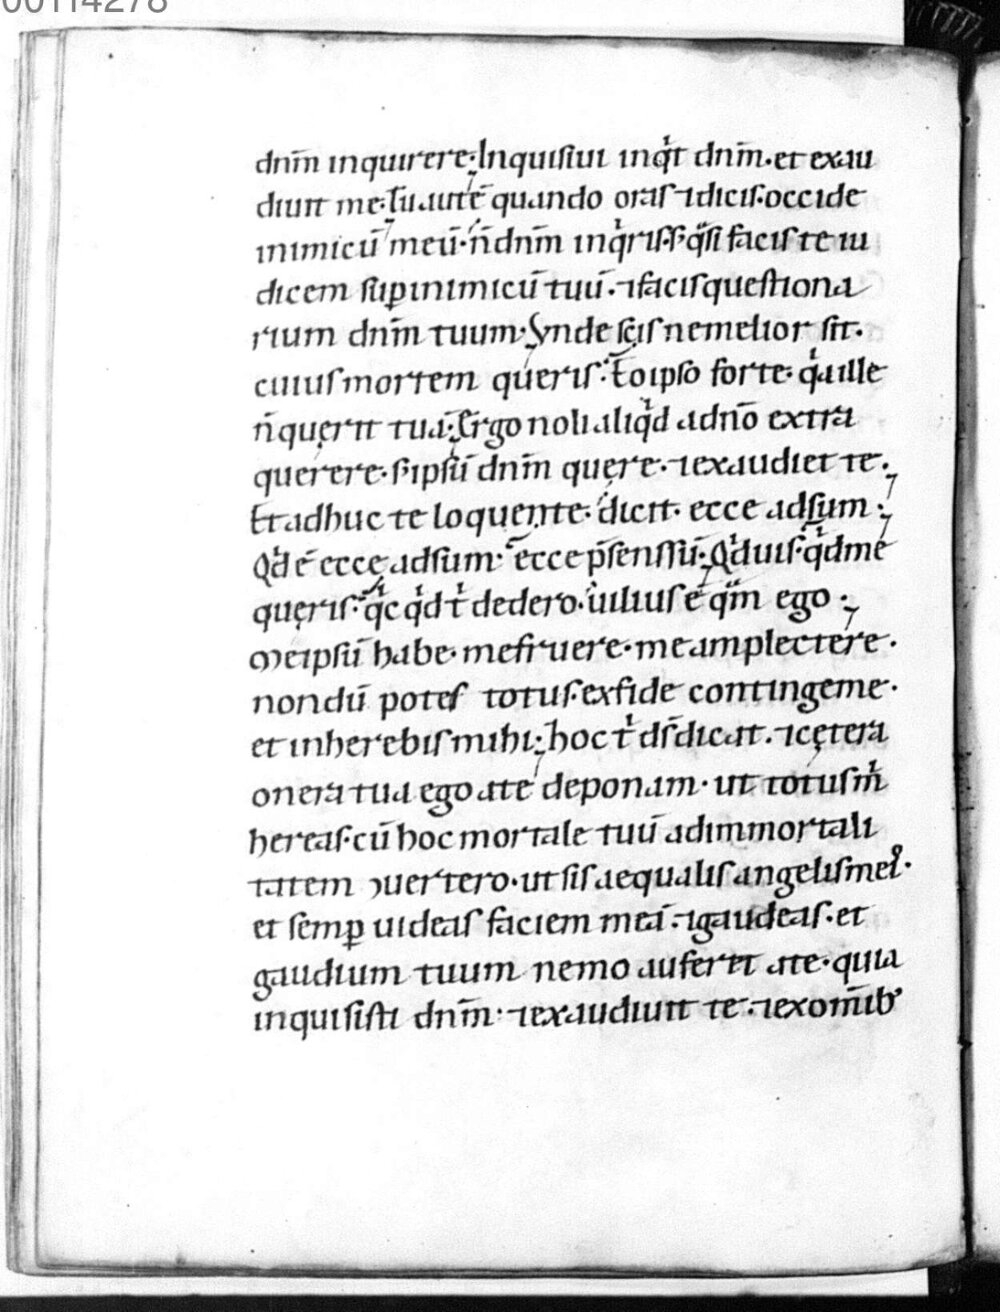 00114278
dnm̄ inquirere; Inquisiui inqͥt dnm̄. et exau
diuit me. Tu aute᷑ quando oras ⁊ dicis. occide
inimicū meū. n̄ dnm̄ inqͥris. sꝫ qͣsi facis te iu
dicem sup̱ inimicū tuū. ⁊ facis questiona
rium dnm̄ tuum. Vnde scis ne melior sit.
cuius mortem queris. Eo ipso forte. qͥa ille
n̄ querit tuā; Ergo noli aliqͥd ad dnō extra
querere. s; ipsū dnm̄ quęre. ⁊ exaudiet te.
Et adhuc te loquente. dicit. ecce adsum;
Qͥd ē ecce adsum. ecce p̄sens sū. Qͥd uis. qͥd a me
quęris. qͥcqͥd tͥ dedero. uilius ē qͣm ego;
Me ipsū habe. me fruere. me amplectere.
nondū potes totus. ex fide continge me.
et inherebis mihi; hoc tͥ ds̄ dicat. ⁊ cętera
onera tua ego a te deponam. ut totus mͥ
hereas. cū hoc mortale tuū ad immortali
tatem ꝯuertero. ut sis aequalis angelis meis.
et semp̱ uideas faciem meā. ⁊ gaudeas. et
gaudium tuum nemo aufert a te. quia
inquisisti dnm̄. ⁊ exaudiuit te. ⁊ ex om̄ib'